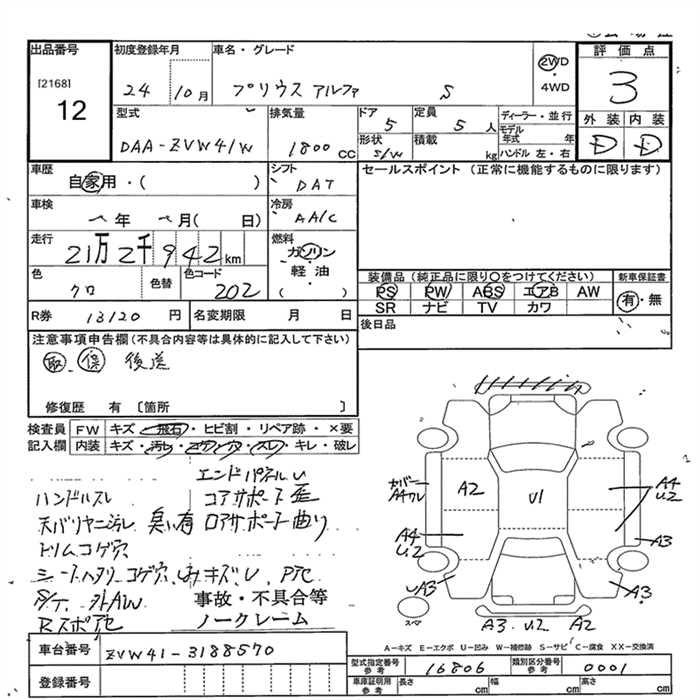 出品番号
[2168]
12
初度登録年月
24 10月
車名・グレード
プリウス アルファ S
2WD
・
4WD
評価点
3
外装 内装
D D
型式
DAA-ZVW41W
排気量
1800 CC
ドア
5
形状
S/W
定員
5 人
積載
kg
ディーラー・並行
モデル年式 年
ハンドル 左・右
車歴
自家用・( )
シフト
DAT
車検
年 月( 日)
冷房
AAC
走行
21万2千942km
燃料
ガソリン
・
軽油
( )
色
クロ
色替
色コード
202
R券 13120 円
名変期限 月 日
セールスポイント (正常に機能するものに限ります)
装備品 (純正品に限り○をつけてください)
PS PW ABS エアB AW
SR ナビ TV カワ
新車保証書
有・無
後日品
注意事項申告欄(不具合内容等は具体的に記入して下さい)
取.保 後送
修復歴 有 〔箇所 〕
検査員記入欄
FW キズ・飛石・ヒビ割・リペア跡・×要
内装 キズ・汚れ・コゲ穴・スレ・キレ・破レ
エンドパネルU
ハンドルスレ
コアサポート歪
天バリヤニジル 臭い有
ロアサポート曲り
トリムコゲ穴
シートヘタリ コゲ穴
キズ、U
S/T. 外AW
事故・不具合等
ノークレーム
カバー
A2
U1
A4
U2
A4
U2
UA3
A3
A3
スペア
A3 U2 A2
A-キズ E-エクボ U-凹み W-補修跡 S-サビ C-腐食 XX-交換済
車台番号 ZVW41-3188570
登録番号
型式指定番号
参考
16806
類別区分番号
参考
0001
車庫証明用
参考
長さ cm 幅 cm 高さ cm